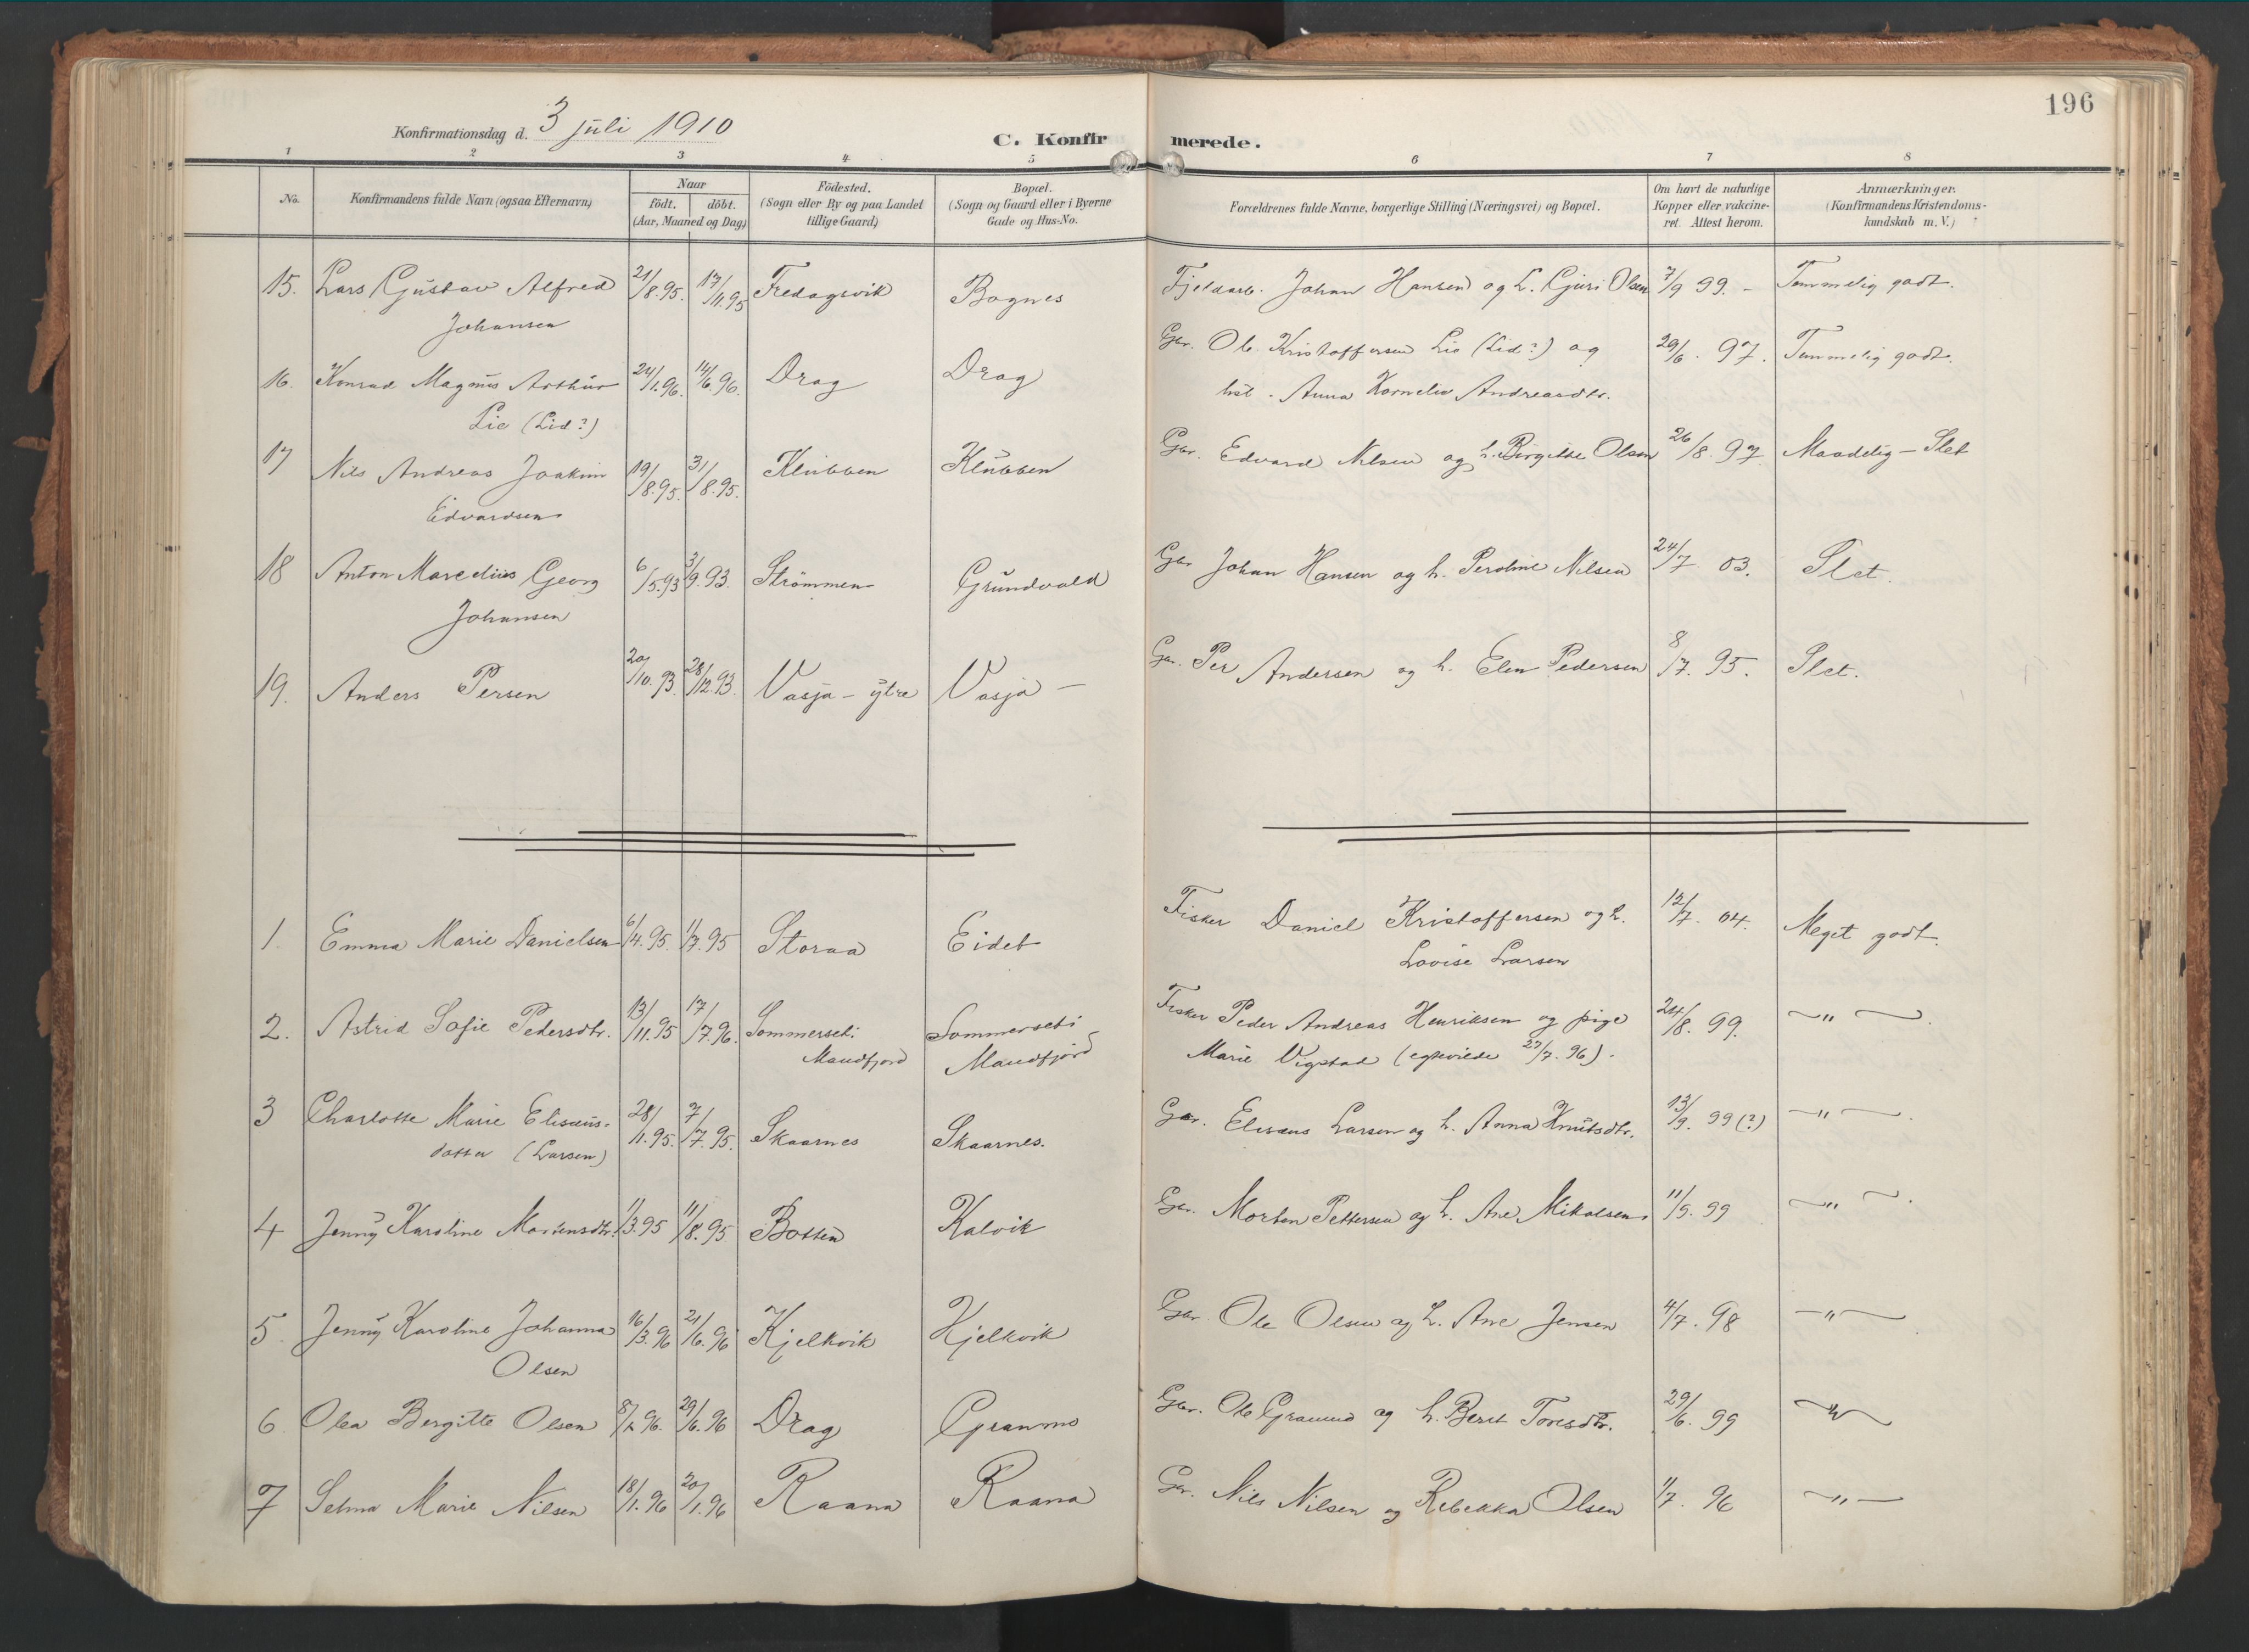 196
Konfirmationsdag d. 3 juli 1910
C. Konfirmerede.
1 2 3 4 5 6 7 8
No.
Konfirmandens fulde Navn (ogsaa Efternavn)
Naar
födt. döbt.
(Aar, Maaned og Dag)
Födested.
(Sogn eller By og paa Landet
tillige Gaard)
Bopæl.
(Sogn og Gaard eller i Byerne
Gade og Hus-No.
Forældrenes fulde Navne, borgerlige Stilling (Næringsvei) og Bopæl.
Om havt de naturlige
Kopper eller vakcine-
ret. Attest herom.
Anmærkninger.
(Konfirmandens Kristendoms-
kundskab m. V.)
15. Lars Gustav Alfred 21/8.95. 17/11.95 Fredagsvik Bognes Fjeldarb. Johan Hansen og h. Guri Olsen 7/9 99. - Temmelig godt.
Johansen
16. Konrad Magnus Arthur 24/1.96. 14/6.96. Drag Drag Gbr. Ole Kristoffersen Lie (Lid?) og 29/6. 97. Temmelig godt.
Lie (Lid?) hst. Anna Kornelie Andreasdtr.
17 Nils Andreas Joakim 19/8.95. 31/8.95. Klubben Klubben Gbr. Edvard Nilsen og h. Birgitte Olsen 26/8. 97 Maadelig - Slet
Edvardsen
18 Anton Marelius Georg 6/5.93 3/9.93. Strömmen Grundvald Gbr Johan Hansen og h. Peroline Nilsen 24/7. 03. Slet.
Johansen
19. Anders Persen 20/10.93. 28/12.93. Vasja - ytre Vasja - Gbr. Per Andersen og h. Elen Pedersen 8/7. 95. Slet.
1. Emma Marie Danielsen 6/4.95. 1/7.95 Storaa Eidet Fisker Daniel Kristoffersen og h. 12/7. 04. Meget godt.
Lovise Larsen
2. Astrid Sofie Pedersdtr. 13/11.95 17/7.96. Sommerseti Sommerseti Fisker Peder Andreas Henriksen og pige 24/8. 99. - " -
Mandfjord Mandfjord Marie Vigstad (egteviede 27/7. 96).
3 Charlotte Marie Elisæus- 28/1.95. 7/7.95. Skaarnes Skaarnes. Gbr. Elisæus Larsen og h. Anna Knutsdtr. 13/9. 99 (?) - " -
datter (Larsen)
4 Jenny Karoline Mortensdtr. 1/3.95 11/8.95 Botten Kalvik Gbr. Morten Pettersen og h. Ane Mikalsen. 11/9. 99 - " -
5. Jenny Karoline Johanna 16/3.96 21/6.96 Kjelkvik Kjelkvik Gbr. Ole Olsen og h. Ane Jensen 4/7. 98 - " -
Olsen
6 Olea Bergitte Olsen 29/6.96 Drag Granmo Gbr. Ole Granmo og h. Berit Toresdtr. 29/6. 99 - " -
7 Selma Marie Nilsen 18/1.96 20/1.96 Raana Raana Gbr. Nils Nilsen og Rebekka Olsen 1/7. 96 - " -